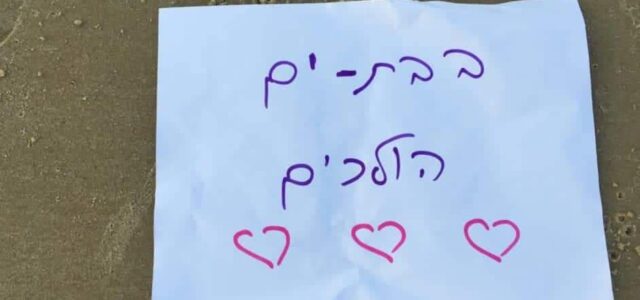 בבת-ים
הולכים